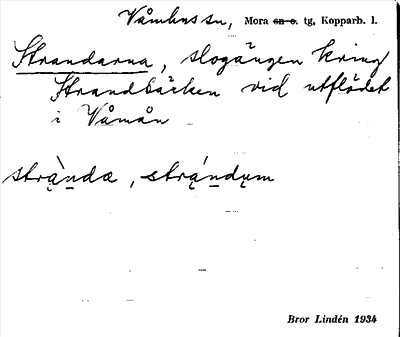 Våmhus sn, Mora sn o. tg, Kopparb. l.
Strandarna, slogången kring
Strandbäcken vid utflödet
i Våmån
strą̀ndæ, strą́ndųm
Bror Lindén 1934